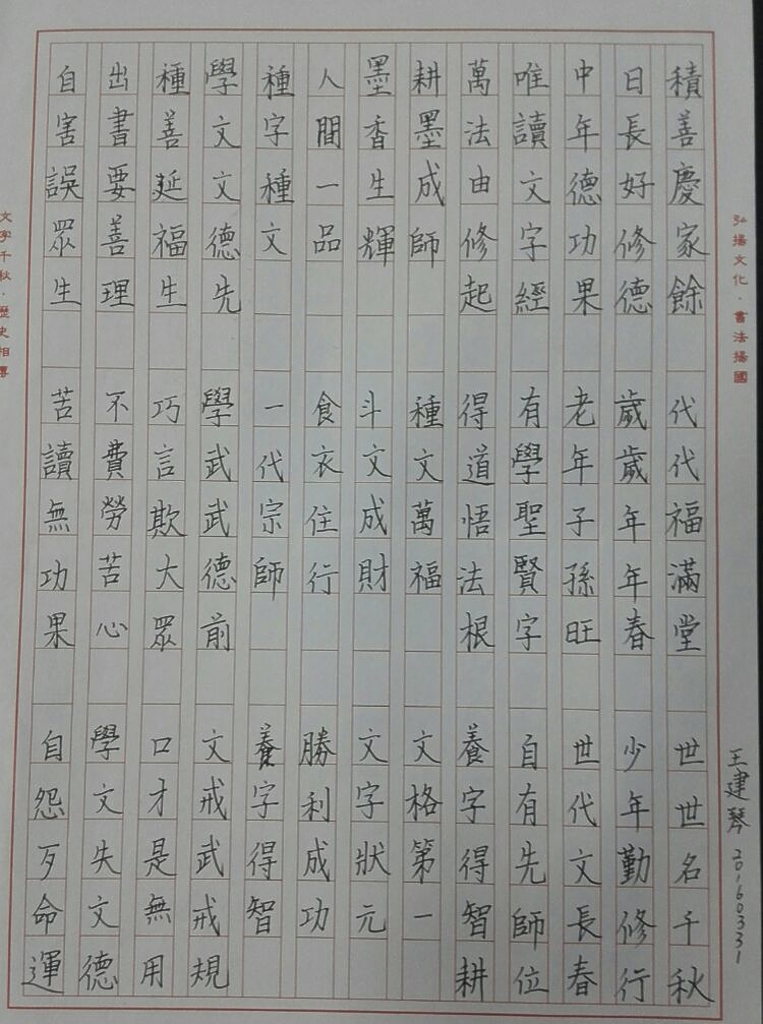 積善慶家餘 代代福滿堂 世世名千秋
日長好修德 歲歲年年春 少年勤修行
中年德功果 老年子孫旺 世代文長春
唯讀文字經 有學聖賢字 自有先師位
萬法由修起 得道悟法根 養字得智耕
耕墨成師 種文萬福 文格第一
墨香生輝 斗文成財 文字狀元
人間一品 食衣住行 勝利成功
種字種文 一代宗師 養字得智
學文文德先 學武武德前 文戒武戒規
種善延福生 巧言欺大眾 口才是無用
出書要善理 不費勞苦心 學文失文德
自害誤眾生 苦讀無功果 自怨歹命運
弘揚文化·書法揚國
王建琴 20160331
文字千秋·歷史相傳